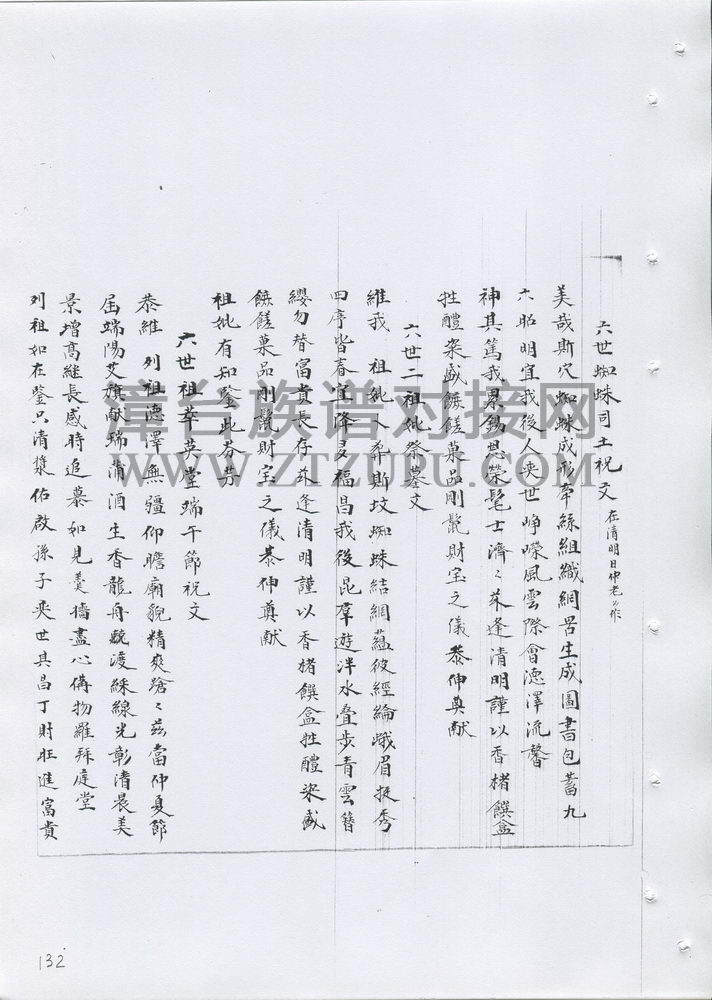 六世蜘蛛司土祝文 在清明日仲老公作
美哉斯穴蜘蛛成形牽絲組織網罟生成圖書包蓄九
六昭明宜我後人奕世崢嶸風雲際會德澤流馨
神其篤我累錫恩榮髦士濟々茲逢清明謹以香楮饌盒
牲醴粢盛餱饈菓品剛鬣財宝之儀恭伸奠献
六世二祖妣祭墓文
維我 祖妣卜葬斯坟蜘蛛結網蘊彼經綸蛾眉挺秀
四序皆春宜降多福昌我後昆羣遊泮水叠步青雲簪
纓勿替富貴長存茲逢清明謹以香楮饌盒牲醴粢盛
餱饈菓品剛鬣財宝之儀恭伸奠献
祖妣有知鑒此芬芳
六世祖萃英堂端午節祝文
恭維 列祖德澤無疆仰瞻廟貌精爽蹌々茲當仲夏節
屆端陽艾旗献瑞蒲酒生香龍舟競渡綵線光彰清晨美
景增高継長感時追慕如見羹墻盡心備物羅拜庭堂
列祖如在鑒只清漿佑啟孫子奕世其昌丁財旺進富貴
漳台族谱对接网
WWW.ZTZUPU.COM
132